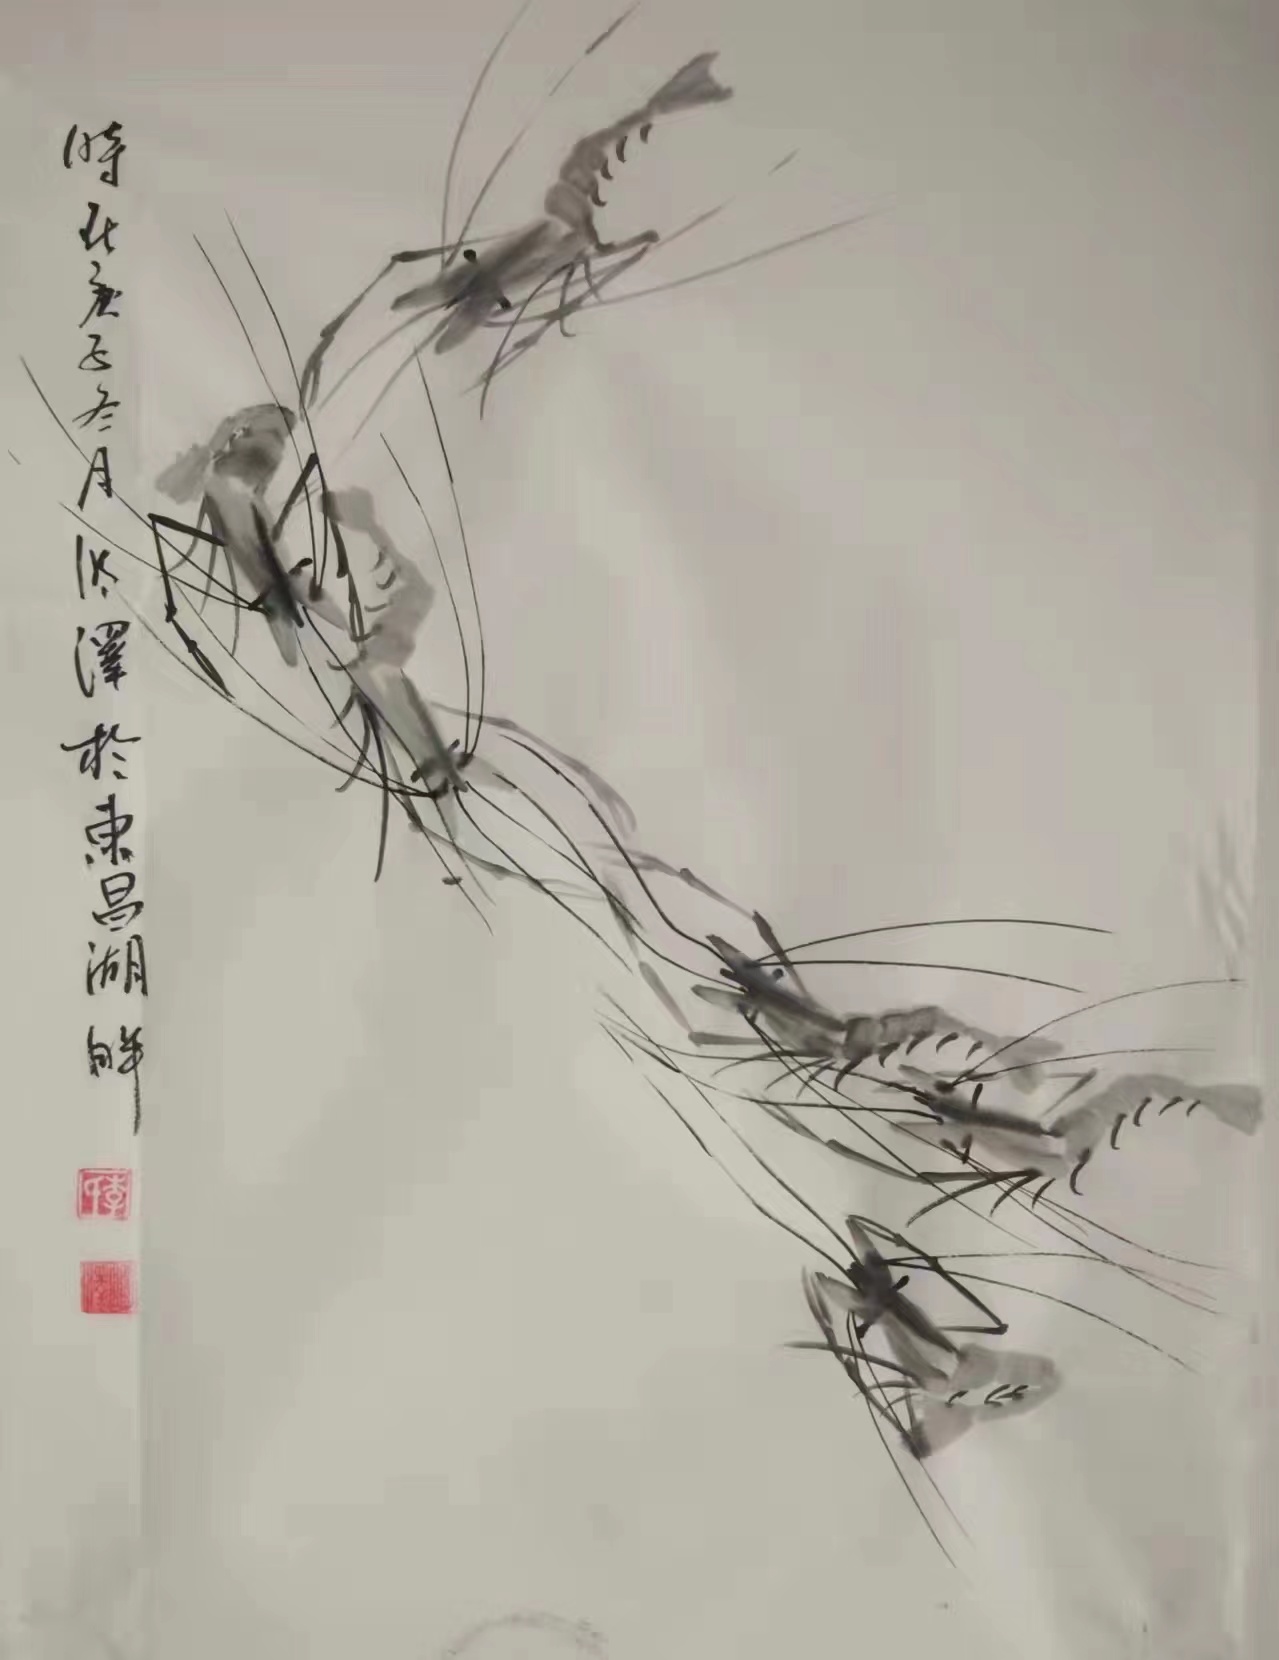 時在庚子冬月洪澤於東昌湖畔